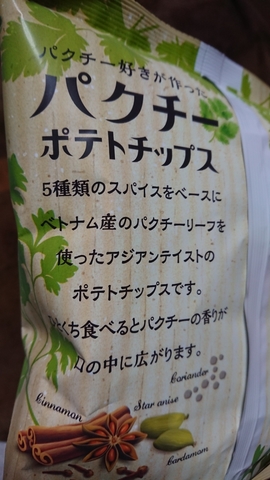 パクチー好きが作った
パクチー
ポテトチップス
5種類のスパイスをベースに
ベトナム産のパクチーリーフを
使ったアジアンテイストの
ポテトチップスです。
ひとくち食べるとパクチーの香りが
口の中に広がります。
Coriander
Cinnamon
Star anise
Cardamom